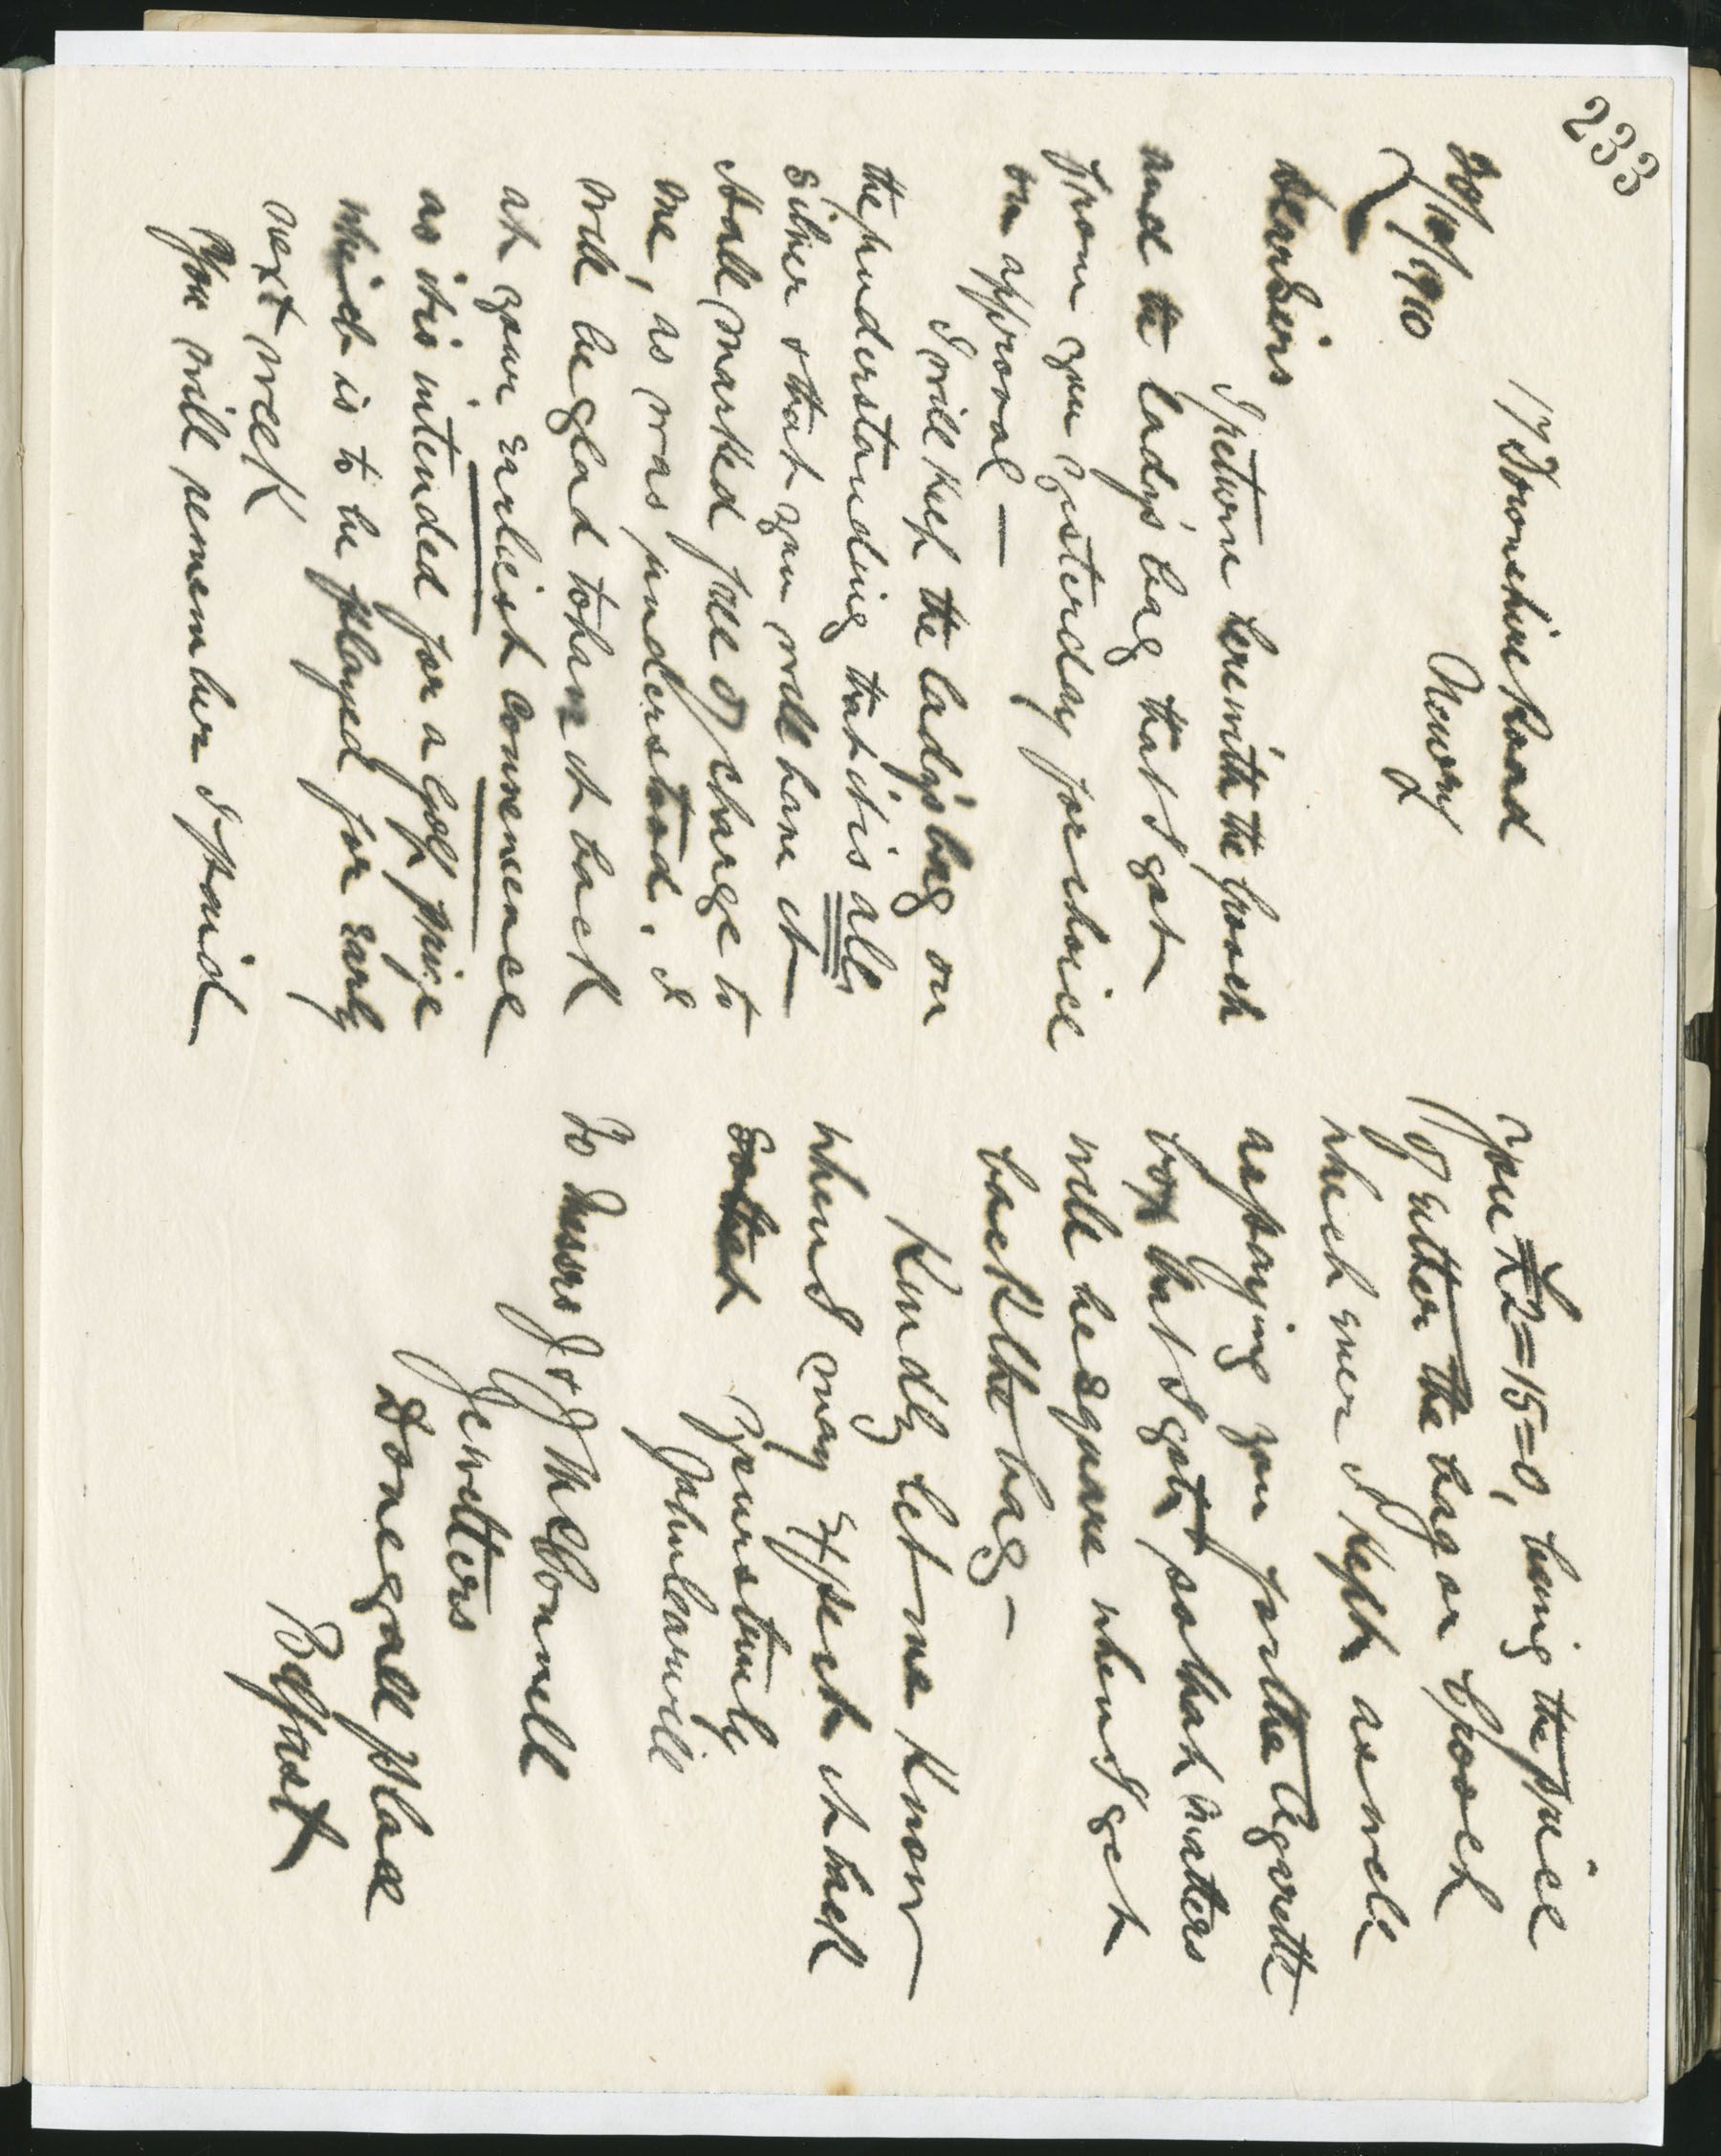 233
17 Downshire Road
Newry
20/10/1910
Dear Sirs
I return herewith the brooch
and the lady's bag that I got
from you yesterday for choice
on approval —
I will keep the lady's bag on
the understanding that it is all
silver & that you will have it
Hall marked free of charge to
me, as was understood. I
will be glad to have it back
at your earliest convenience
as it is intended for a golf prize
which is to be played for early
next week
You will remember I paid
you £2=15=0, being the price
of either the bag or brooch
whichever I kept as well
as paying you for the Cigarette
box that I got, so that matters
will be square when I get
back the bag —
Kindly let me know
when I may expect it back
Yours truly
To Messrs J & J McConnell
Jewellers
Donegall Place
Belfast